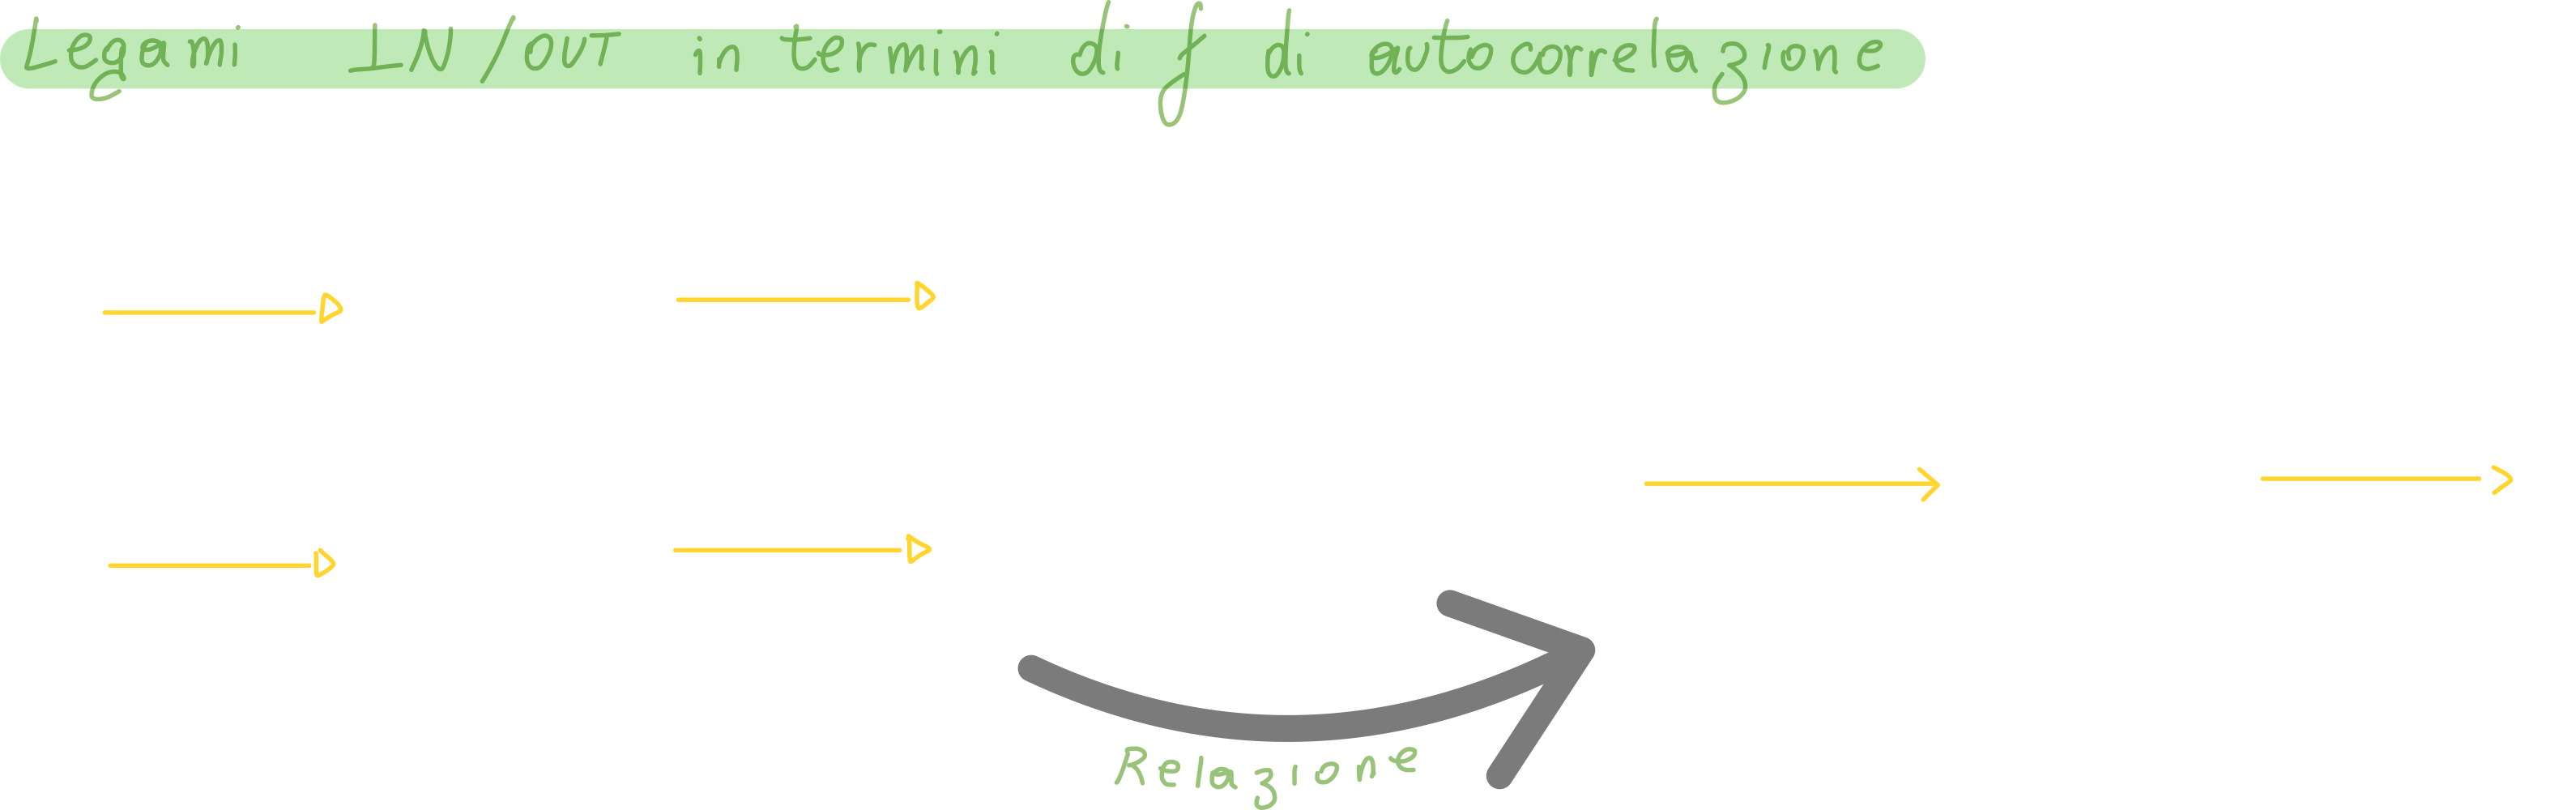 Legami IN/OUT in termini di f di autocorrelazione
Relazione